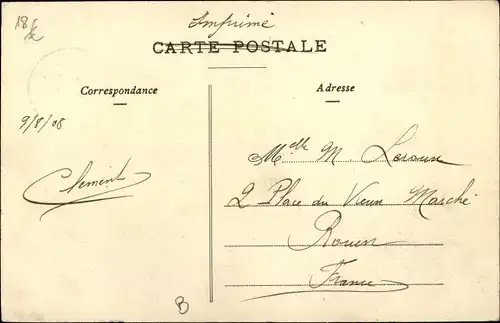 18
Imprimé
CARTE POSTALE
Correspondance
Adresse
9/8/08
Clement
Melle M. Leroux
2 Place du Vieux Marché
Rouen
France
B